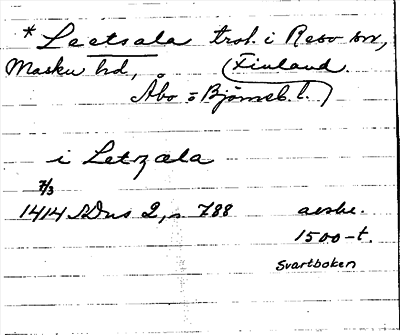 * Leetsala trol. i Reso sn,
Masku hd, (Finland.
Åbo = Björneb. l.)
i Letzala
7/3
1414 SDns 2, s. 788 avskr.
1500-t.
Svartboken